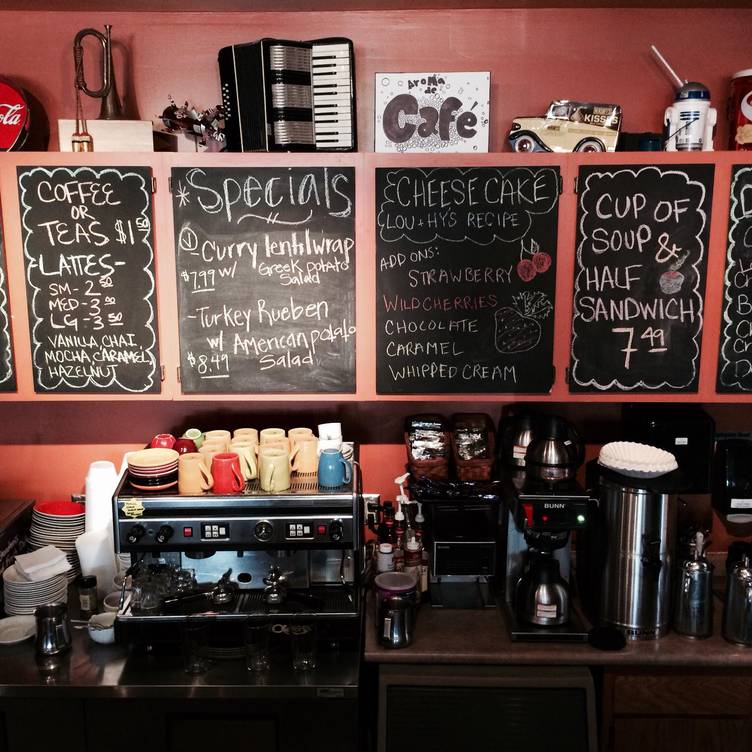 Cola
AROMA
de
Café
KISSES
COFFEE
OR
TEAS $1 50
LATTES-
SM - 2 50
MED - 3 00
LG - 3 50
VANILLA, CHAI,
MOCHA, CARAMEL,
HAZELNUT
* Specials
① - Curry lentil wrap
$7.99 w/ Greek potato
Salad
- Turkey Rueben
w/ American potato
$8.49 Salad
CHEESE CAKE
LOU & HY'S RECIPE
ADD ONS:
STRAWBERRY
WILD CHERRIES
CHOCOLATE
CARAMEL
WHIPPED CREAM
CUP OF
SOUP &
HALF
SANDWICH
7 49
BUNN